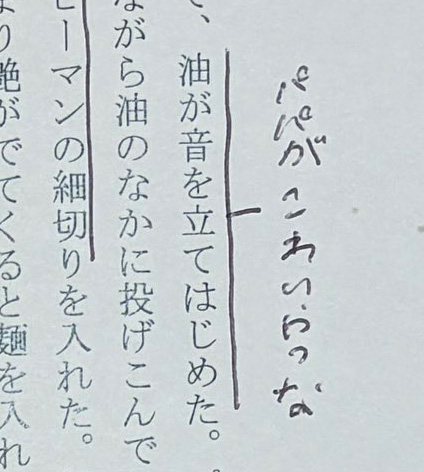 パパが こわい
、油が音を立てはじめた。
がら油のなかに投げこんで
ーマンの細切りを入れた。
り艶がでてくると麺を入れ